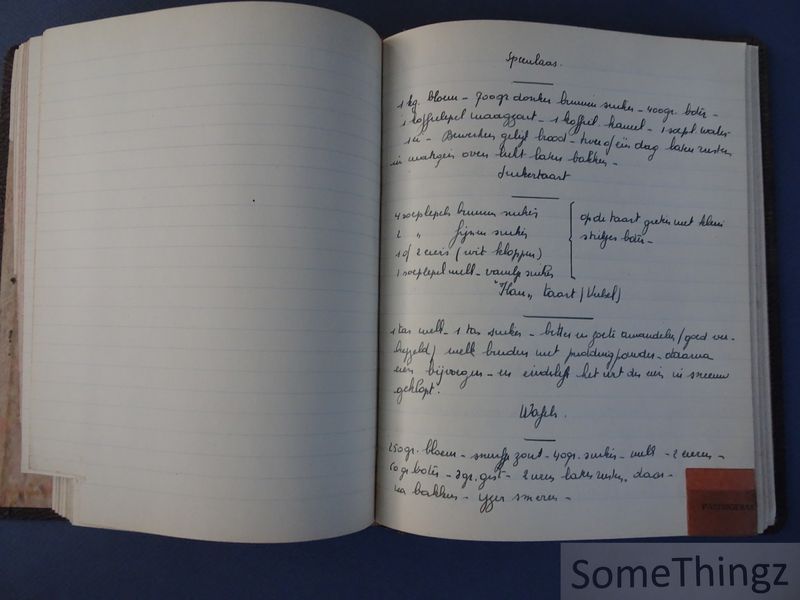 Speculaas.
1 kg. bloem - 700gr donker bruinen suiker - 400gr. boter -
1 koffielepel maagzout - 1 koffiel kaneel - 1 soepl water
1 ei - Bewerken gelijk brood - twee of één dag laten rusten
in matigen oven licht laten bakken -
Suikertaart
4 soeplepels bruinen suiker
2 " fijnen suiker
1 of 2 eiers (wit kloppen)
1 soeplepel melk - vanille suiker
op de taart gieten met klein
stukjes boter -
"Flan" taart (Vulsel)
1 tas melk - 1 tas suiker - bitter en zoete amandelen (goed ver-
melk binden met puddingpoeder - daarna
eiers bijvoegen - en eindelijk het wit der eiers in sneeuw
geklopt.
Wafels.
250gr. bloem - snuifje zout - 40gr. suiker - melk - 2 eieren -
60 gr boter - gr. gist - 2 uren laten rusten, daar-
na bakken - yzer smeren -
SomeThingz